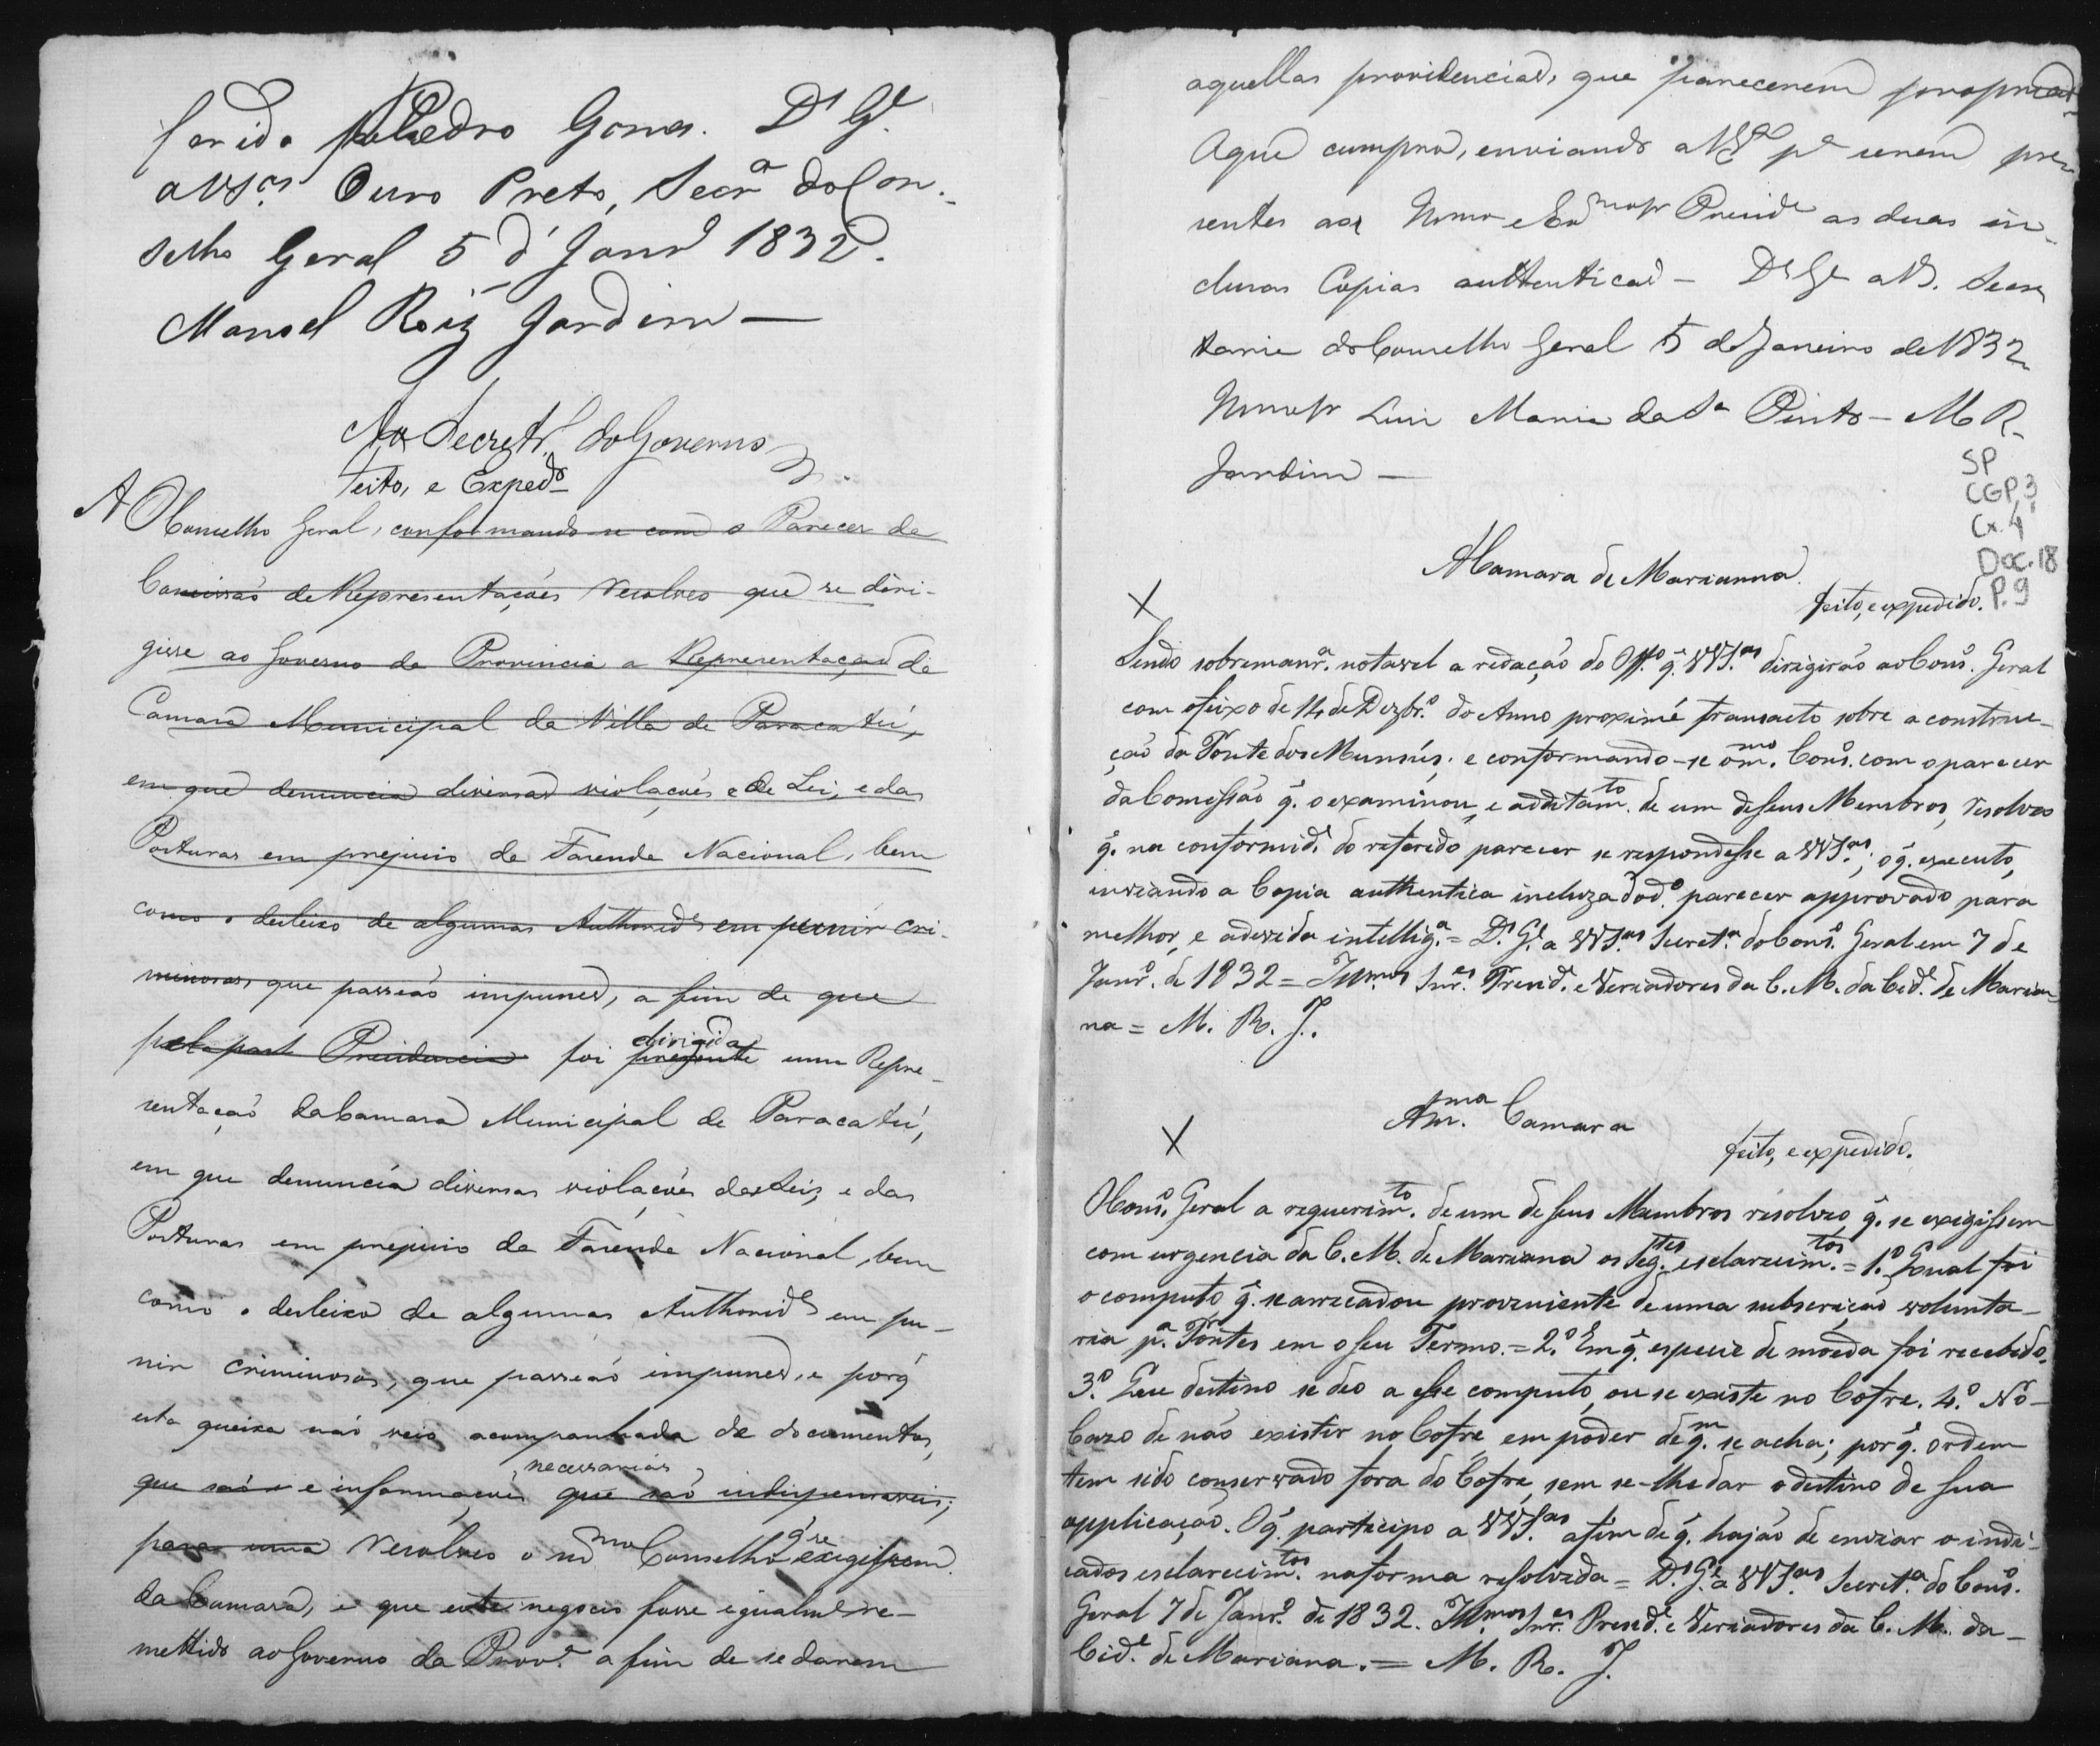 ferido Pedro Gomes. Ds Ge
a VSas Ouro Preto, Secra do Con-
selho Geral 5 d'Janro 1832.
Manoel Roiz Jardim —
Ao Secretro do Governo
Feito, e Expedo
A O Conselho Geral, conformando-se com o Parecer da
Comissão de Representações resolveo que se diri-
gisse ao Governo da Provincia a Representação da
Camara Municipal da Villa de Paracatú,
em que denuncia diversas violações de Lei, e das
Posturas em prejuizo da Fazenda Nacional, bem
como o desleixo de algumas Authorides em punir cri-
minosos, que passeão impunes, a fim de que
pela parte Presidencia foi presente dirigida uma Repre-
sentação da Camara Municipal de Paracatú,
em que denuncía diversas violações das Leis, e das
Posturas em prejuizo da Fazenda Nacional, bem
como o desleixo de algumas Authorides em pu-
nir criminosos, que passeão impunes, e porq̃
esta queixa não veio acompanhada de documentos,
que são e informações necessarias que são indispensaveis;
para uma resolveo o mmo Conselho q̃ se exigissem
da Camara, e que este negocio fosse igualme re-
mettido ao Governo da Prova a fim de se darem
aquellas providencias, que parecerem proprias
O que cumpro, enviando a VSa pa serem pre-
sentes ao Illmo e Exmo Sr Preside as duas in-
clusas Copias authenticas — Ds Ge a VS. Secre
taria do Conselho Geral 5 de Janeiro de 1832
Illmo Sr Luiz Maria da Sa Pinto — M R
Jardim —
SP
CGP3
Cx. 4
Doc. 18
P. 9
A Camara de Marianna.
X feito, e expedido.
Sendo sobremanra. notavel a redação do Offo. q̃. VVSas. dirigirão ao Conso. Geral
com o feixo de 14 de Dezbro. do Anno proximé transacto sobre a construc-
ção da Ponte dos Monsús; e conformando-se o mmo. Conso. com o parecer
da Comissão q̃. o examinou, e additamto. de um de seus Membros, resolveo
q̃. na conformide. do referido parecer se respondesse a VVSas.; o q̃. executo,
inviando a Copia authentica incluza do do. parecer approvado para
melhor, e a devida intelliga. = Ds. Ge. a VVSas. Secreta. do Conso. Geral em 7 de
Janro. de 1832 = Illmos. Snres. Preside. e Veriadores da C. M. da Cide. de Marian
na = M. R. J.
Á mma. Camara
X feito, e expedido.
O Conso. Geral a requerimto. de um de seus Membros resolveo q̃. se exigissem
com urgencia da C. M. de Mariana os segtes. esclarecimtos. = 1.º Qual foi
o computo q̃. se arrecadou proveniente de uma subscrição volunta-
ria pa. Pontes em o seu Termo. = 2.º Em q̃. especie de moeda foi recebido.
3.º Que destino se deo a esse computo, ou se existe no Cofre. 4.º No
Cazo de não existir no Cofre, em poder de qm. se acha; por q̃. ordem
tem sido conservado fora do Cofre, sem se-lhe dar o destino de sua
applicação. O q̃. participo a VVSas. afim de q̃. hajão de enviar o indi-
cados esclarecimtos. na forma resolvida = Ds. Ge. a VVSas. Secreta. do Conso.
Geral 7 de Janro. de 1832. Illmos. Snres. Preside. e Veriadores da C. M. da
Cide. de Mariana. = M. R. J.